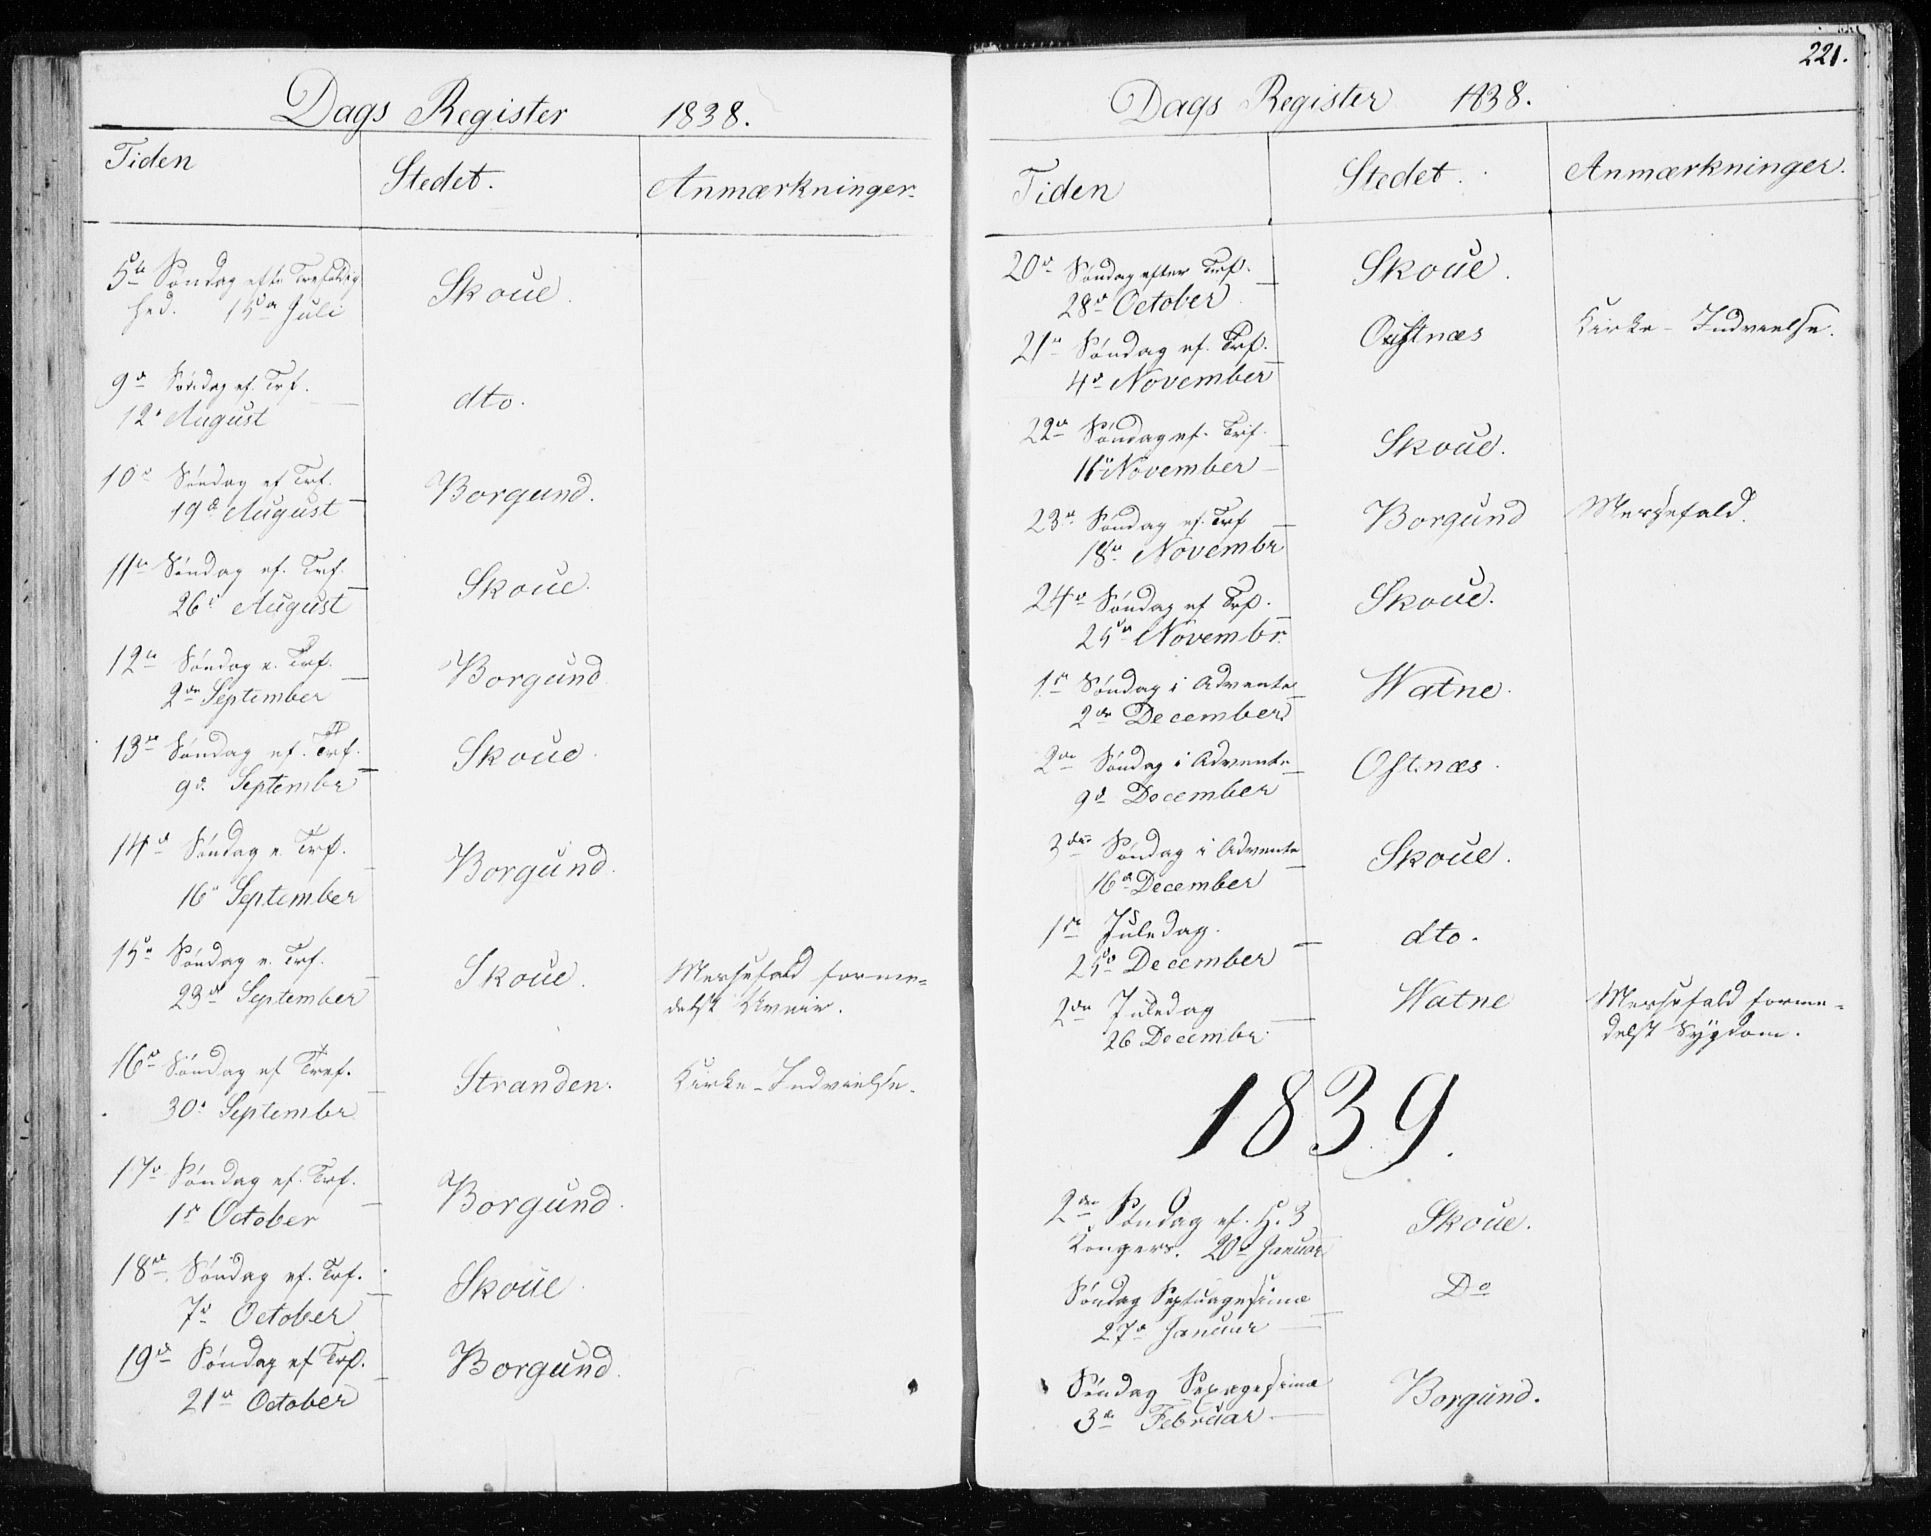 Dags Register 1838.
Tiden Stedet. Anmærkninger.
5te Søndag efter Trefoldig
hed. 15de Juli Skoue.
9de Søndag ef. Trf.
12te August dto.
10de Søndag ef Trf.
19de August Borgund.
11te Søndag ef. Trf.
26de August Skoue.
12te Søndag e. Trf.
2den September Borgund
13de Søndag ef. Trf.
9de Septembr Skoue
14de Søndag e. Trf.
16de September Borgund.
15de Søndag e. Trf. Skoue. Messefald forme-
23de September delst Uveir.
16de Søndag ef Tref. Stranden. Kirke-Indvielse.
30te Septembr
17de Søndag ef. Trf. Borgund.
1ste October
18de Søndag ef. Trf. Skoue
7de October
19de Søndag ef Trf. Borgund.
21de October
221.
Dags Register 1838.
Tiden Stedet. Anmærkninger.
20de Søndag efter Trf. Skoue.
28de October
21de Søndag ef. Trf. Østnæs Kirke-Indvielse.
4de November
22de Søndag ef. Trf. Skoue.
11te November
23de Søndag ef. Trf Borgund Messefald.
18de Novembr
24de Søndag ef Trf. Skoue.
25de Novembr.
1ste Søndag i Advente Watne.
2den December
2den Søndag i Advente Østnæs.
9de December
3die Søndag i Advente Skoue.
16de December
1ste Juledag. dto.
25de December
2den Juledag Watne Messefald forme-
26 Decembr. delst Sygdom.
1839.
2den Søndag ef. H. 3 Skoue.
Kongers. 20de Januar
Søndag Septuagesima Do
27de Januar
Søndag Sexagesima Borgund.
3die Februar